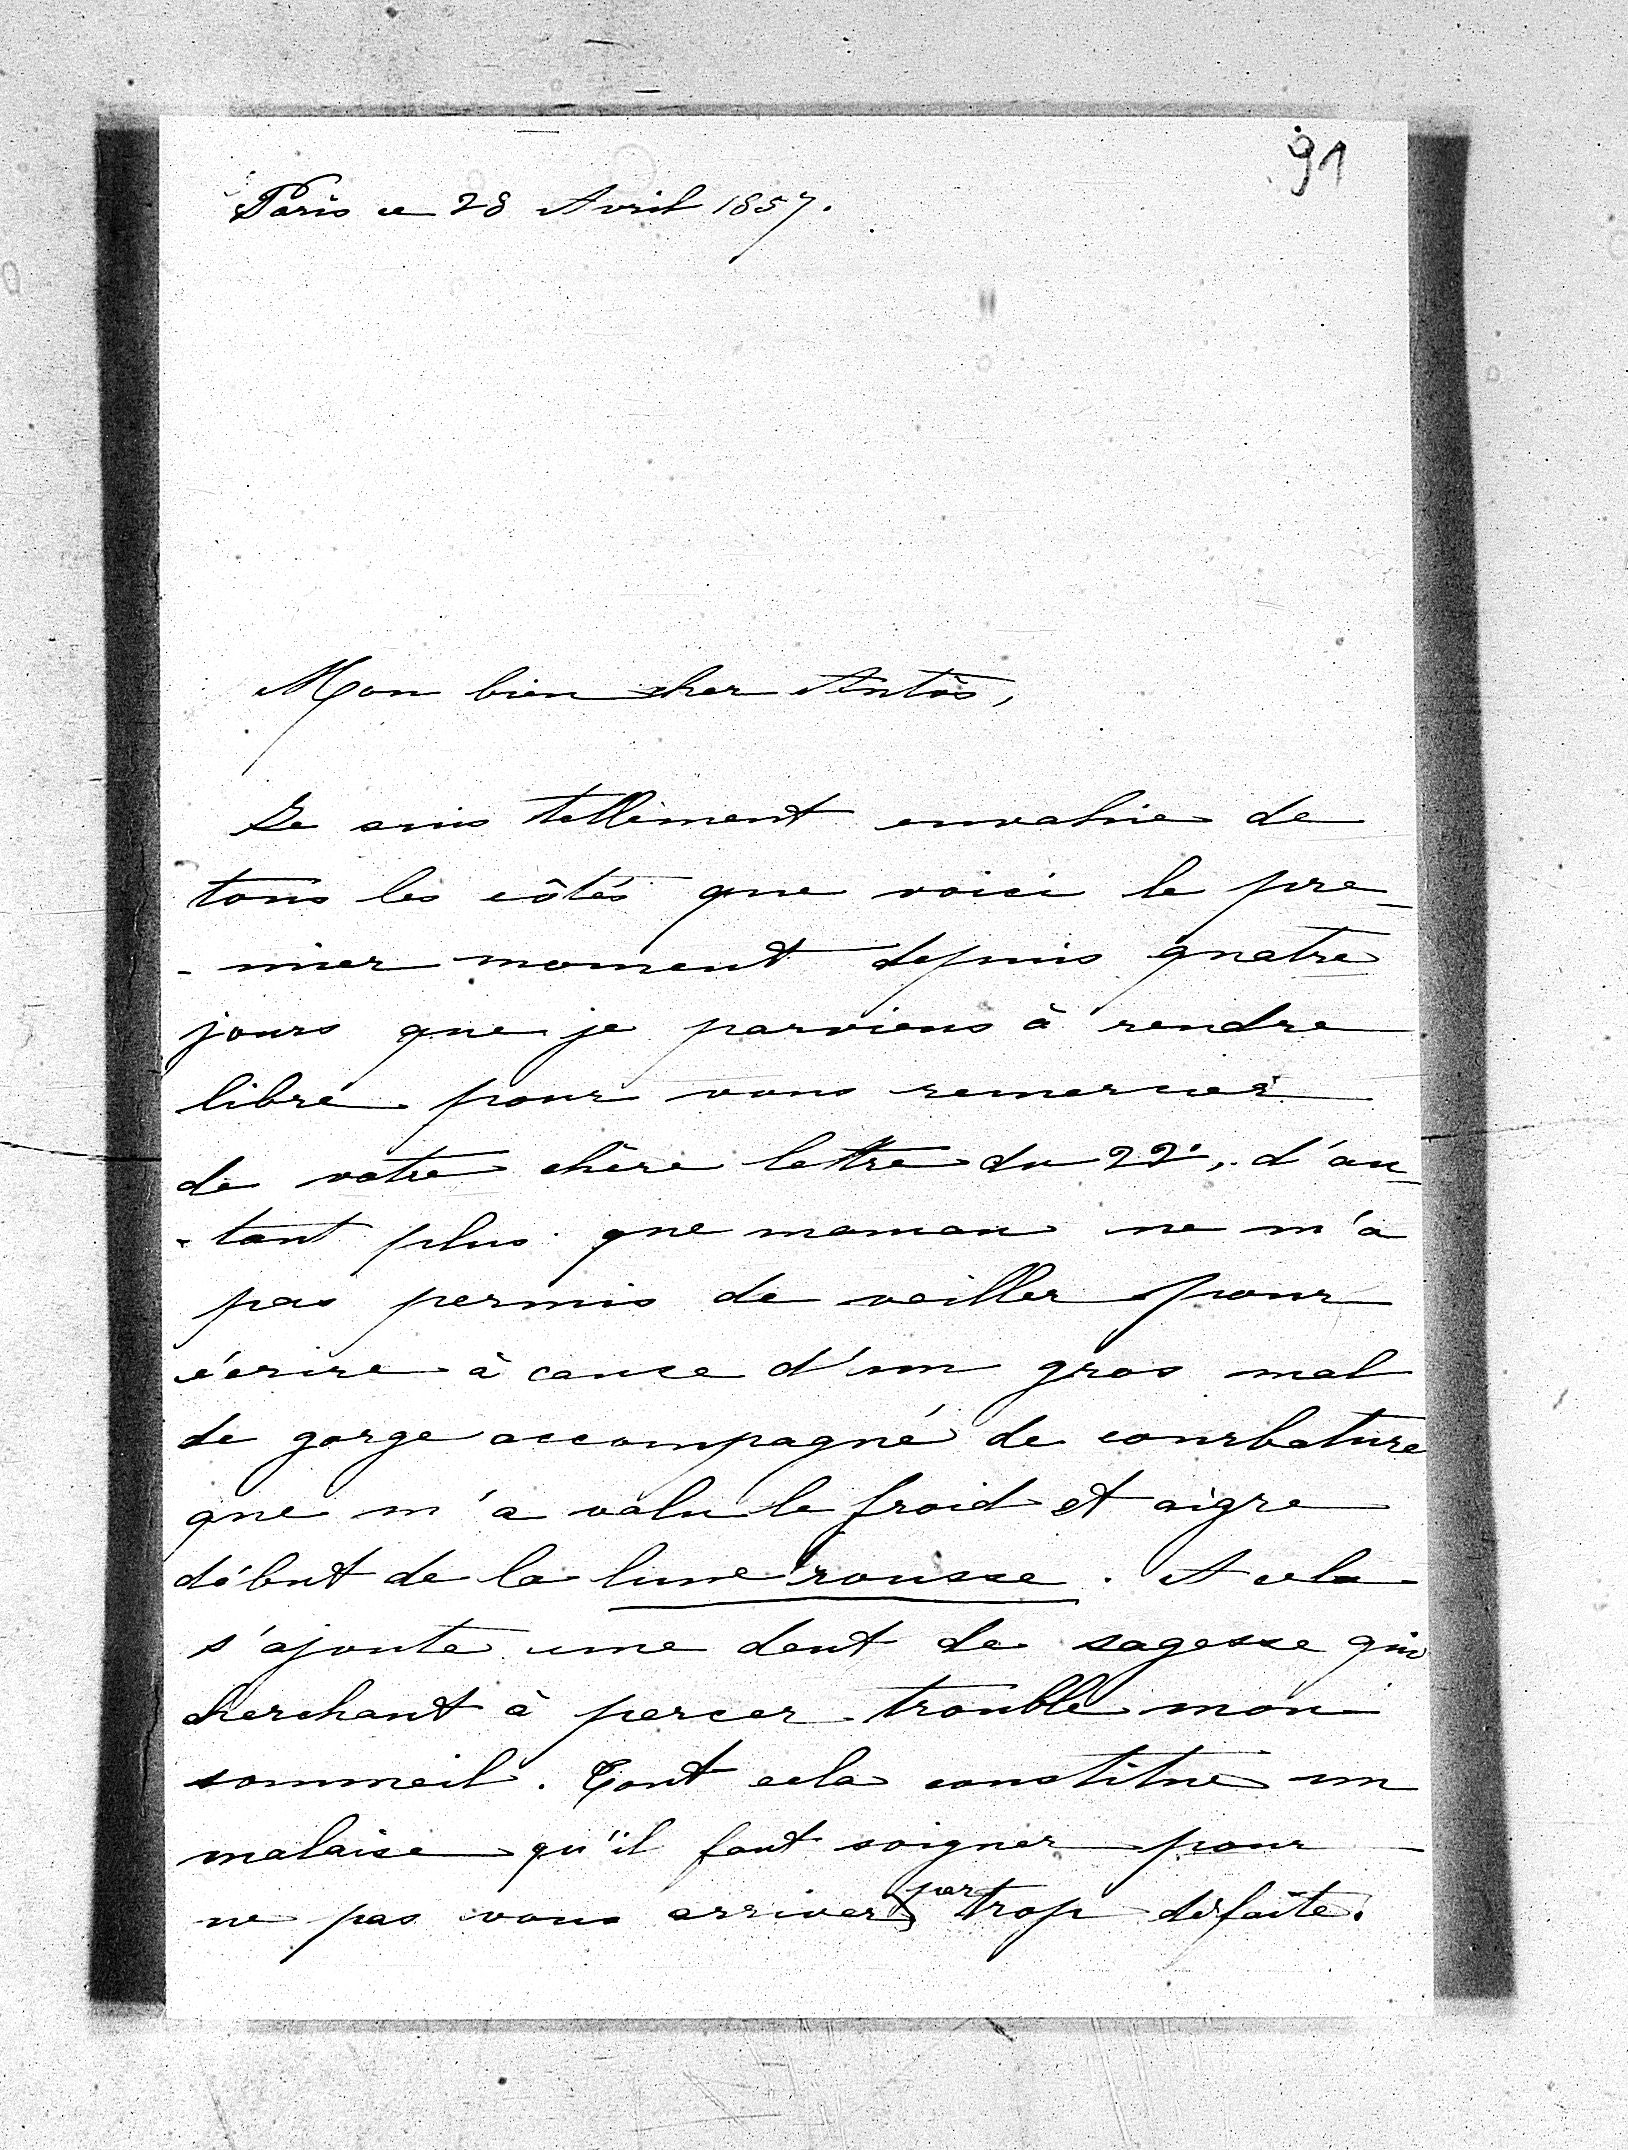 91
Paris ce 28 Avril 1857.
Mon bien cher Antôs,
Je suis tellement envahie de
tous les côtés que voici le pre-
-mier moment depuis quatre
jours que je parviens à rendre
libre pour vous remercier
de votre chère lettre du 22, d'au-
-tant plus que maman ne m'a
pas permis de veiller pour
écrire à cause d'un gros mal
de gorge accompagné de courbature
que m'a valu le froid et aigre
début de la lune rousse. A cela
s'ajoute une dent de sagesse qui
cherchant à percer trouble mon
sommeil. Tout cela constitue un
malaise qu'il faut soigner pour
ne pas vous arriver par trop défaite.